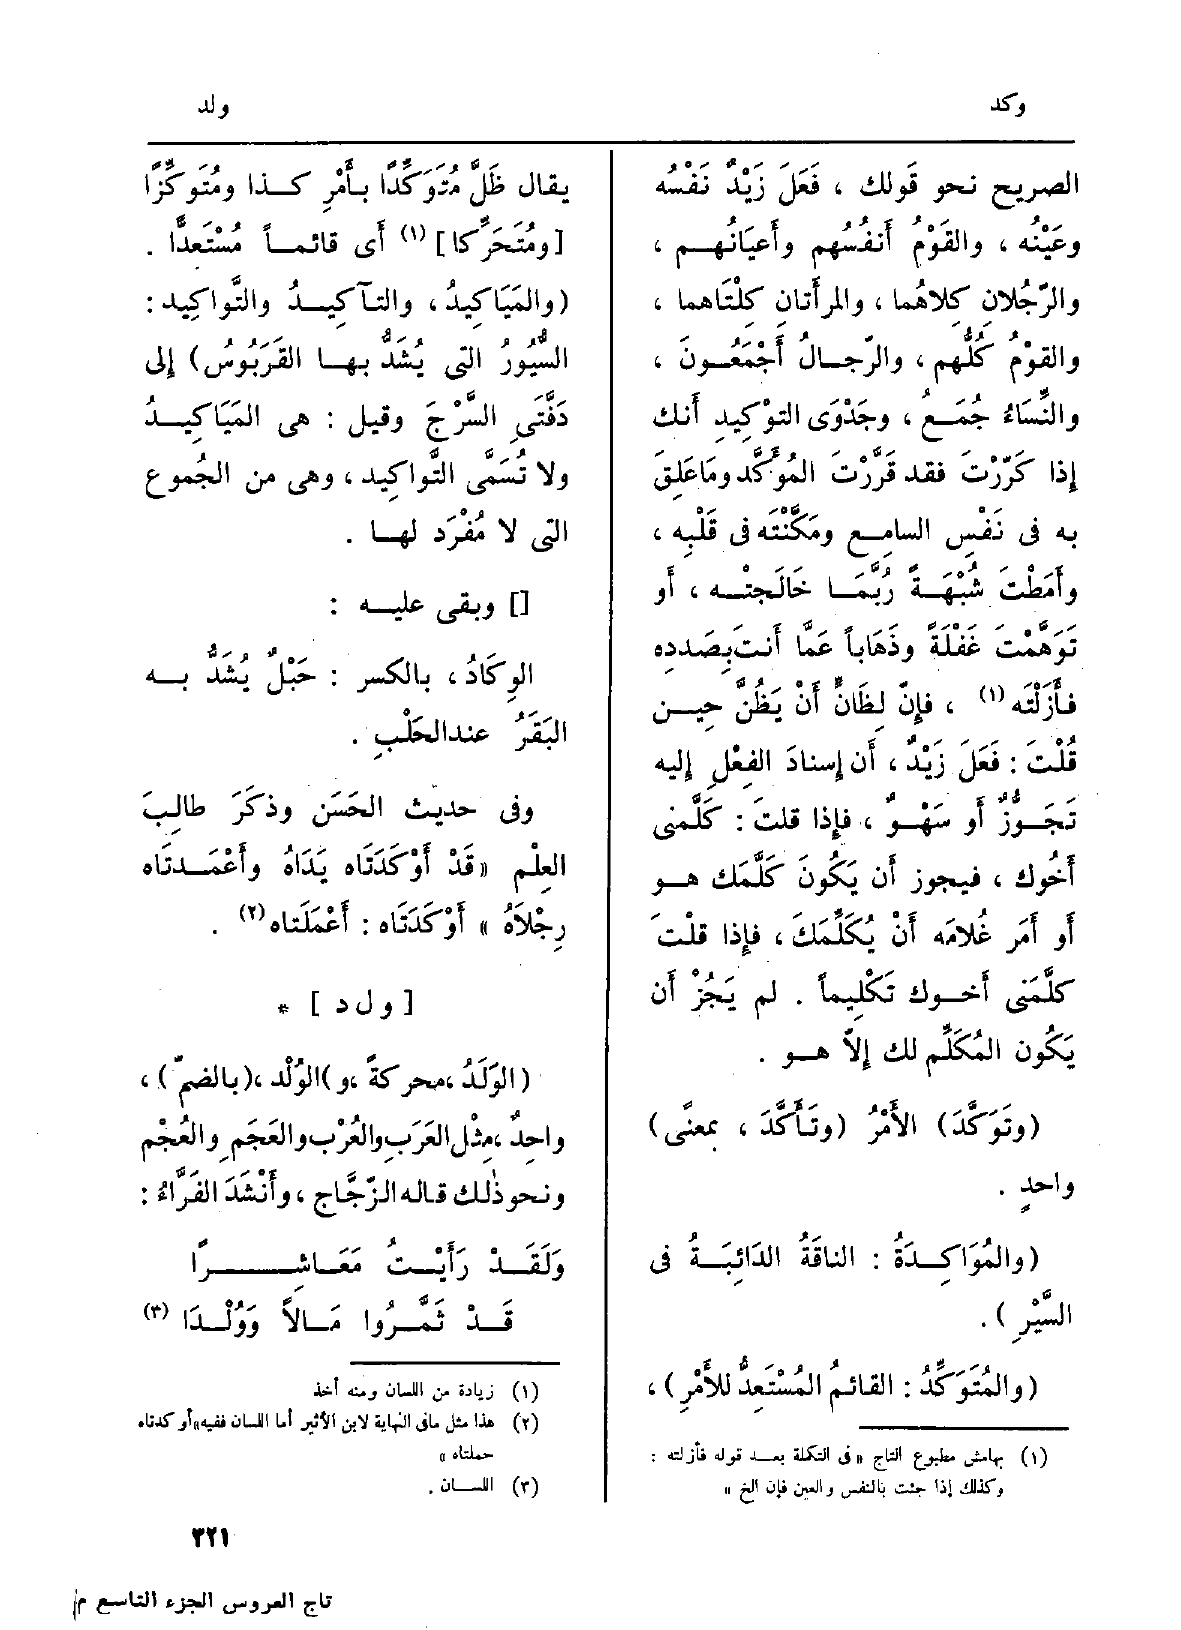 وكد
ولد
الصريح نحو قولك ، فَعَلَ زَيْدٌ نَفْسُه
وعَيْنُه ، والقَوْمُ أَنفُسُهم وأَعيَانُهــم ،
والرّجُلان كِلاهُما ، والمرأَتان كِلْتَاهما ،
والقوْمُ كُلُّهم ، والرّجــالُ أَجْمَعُــونَ ،
والنِّسَاءُ جُمَــعُ ، وجَدْوَى التوْكيدِ أَنك
إذا كَرّرْتَ فقد قَرَّرْتَ المُؤَكَّد وماعَلِقَ
به فى نَفْسِ السامِـع ومَكَّنْتَه فى قَلْبِه ،
وأَمَطْتَ شُبْهَــةً رُبَّمَــا خَالَجتْــه ، أَو
تَوَهَّمْتَ غَفْلَةً وذَهَاباً عَمَّا أَنت بِصَدده
فأَزَلْتَه (١) ، فإنّ لِظَانٍّ أَنْ يَظُنَّ حِيــن
قُلْتَ : فَعَلَ زَيْدٌ ، أَن إسنادَ الفِعْلِ إليه
تَجَــوُّزٌ أَو سَهْــوٌ ، فإذا قلتَ : كَلَّمَنى
أَخُوك ، فيجوز أَن يَكُونَ كَلَّمَك هــو
أَو أَمَر غُلامَه أَنْ يُكَلِّمَكَ ، فإذا قلْتَ
كلَّمَنى أَخــوك تَكْلِيماً . لم يَجُزْ أَن
يَكُون المُكَلِّم لك إلاَّ هــو .
(وتَوَكَّدَ) الأَمْرُ (وتَأَكَّدَ ، بمعنًى)
واحدٍ .
(والمُوَاكِــدَةُ : الناقَةُ الدَائِبَــةُ فى
السَّيْرِ ) .
(والمُتَوَكِّدُ : القائمُ المُسْتَعِدُّ للأَمْرِ) ،
(١) بهامش مطبوع التاج « فى التكملة بعــد قوله فأزلته :
وكذلك إذا جئت بالنفس والعين فإن الخ »
يقال ظَلَّ مُتَوَكِّدًا بأَمْرِ كــذا ومُتَوكِّزًا
[ومُتَحَرِّكا] (١) أى قائمــاً مُسْتَعِدًّا .
(والمَيَاكِيدُ ، والتآكِيــدُ والتَّواكِيد :
السُّيُورُ التى يُشَدُّ بهــا القَرَبُوس) إلى
دَفَّتَىِ السَّرْجَ وقيل : هى المَيَاكِيــدُ
ولا تُسَمَّى التَّواكِيد ، وهى من الجُموع
التى لا مُفْرَد لهــا .
[] وبقى عليــه :
الوِكَادُ ، بالكسر : حَبْلٌ يُشَدُّ بــه
البَقَرُ عندالحَلْبِ .
وفى حديث الحَسَن وذكَرَ طالِبَ
العِلْم «قَدْ أَوْكَدَتَاه يَدَاهُ وأَعْمَــدتَاه
رِجْلاَهُ » أَوْكَدَتَاه : أَعْمَلَتاه (٢) .
[ و ل د ] *
(الوَلَدُ ،محركةً ،و)الوُلْد ،(بالضمّ) ،
واحِدٌ ،مِثْل العَرَبِ والعُرْب والعَجَمِ والعُجْم
ونحو ذٰلك قاله الزّجَّاج ، وأَنْشَدَ الفَرَّاءُ :
وَلَقَــدْ رَأَيْــتُ مَعَــاشِــــرًا
قَــدْ ثَمَّــرُوا مَــالاً وَوُلْــدَا (٣)
(١) زيادة من اللسان ومنه أخذ
(٢) هذا مثل مافى النهاية لابن الأثير أما اللسان ففيه«أوكدتاه
حملتاه »
(٣) اللســان .
٣٢١
تاج العروس الجزء التاسع م